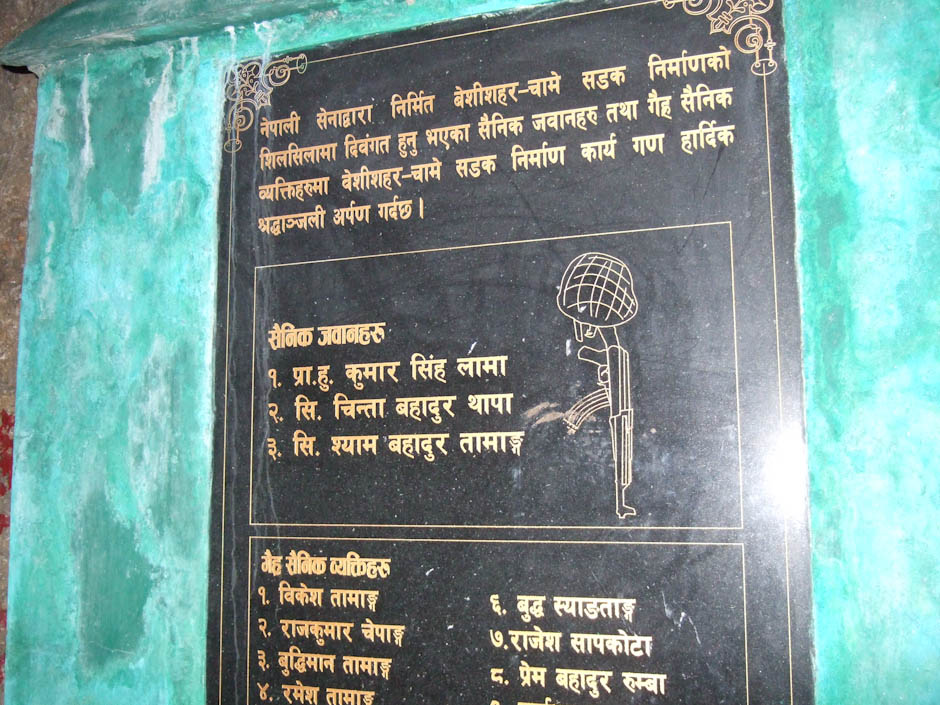 नेपाली सेनाद्वारा निर्मित बेशीशहर-चामे सडक निर्माणको
शिलसिलामा दिवंगत हुनु भएका सैनिक जवानहरु तथा गैह्र सैनिक
व्यक्तिहरुमा बेशीशहर-चामे सडक निर्माण कार्य गण हार्दिक
श्रद्धाञ्जली अर्पण गर्दछ।
सैनिक जवानहरु
१. प्रा.हु. कुमार सिंह लामा
२. सि. चिन्ता बहादुर थापा
३. सि. श्याम बहादुर तामाङ्ग
गैह्र सैनिक व्यक्तिहरु
१. विकेश तामाङ्ग
२. राजकुमार चेपाङ्ग
३. बुद्धिमान तामाङ्ग
४. रमेश तामाङ्ग
६. बुद्ध स्याङताङ्ग
७.राजेश सापकोटा
८. प्रेम बहादुर रुम्बा